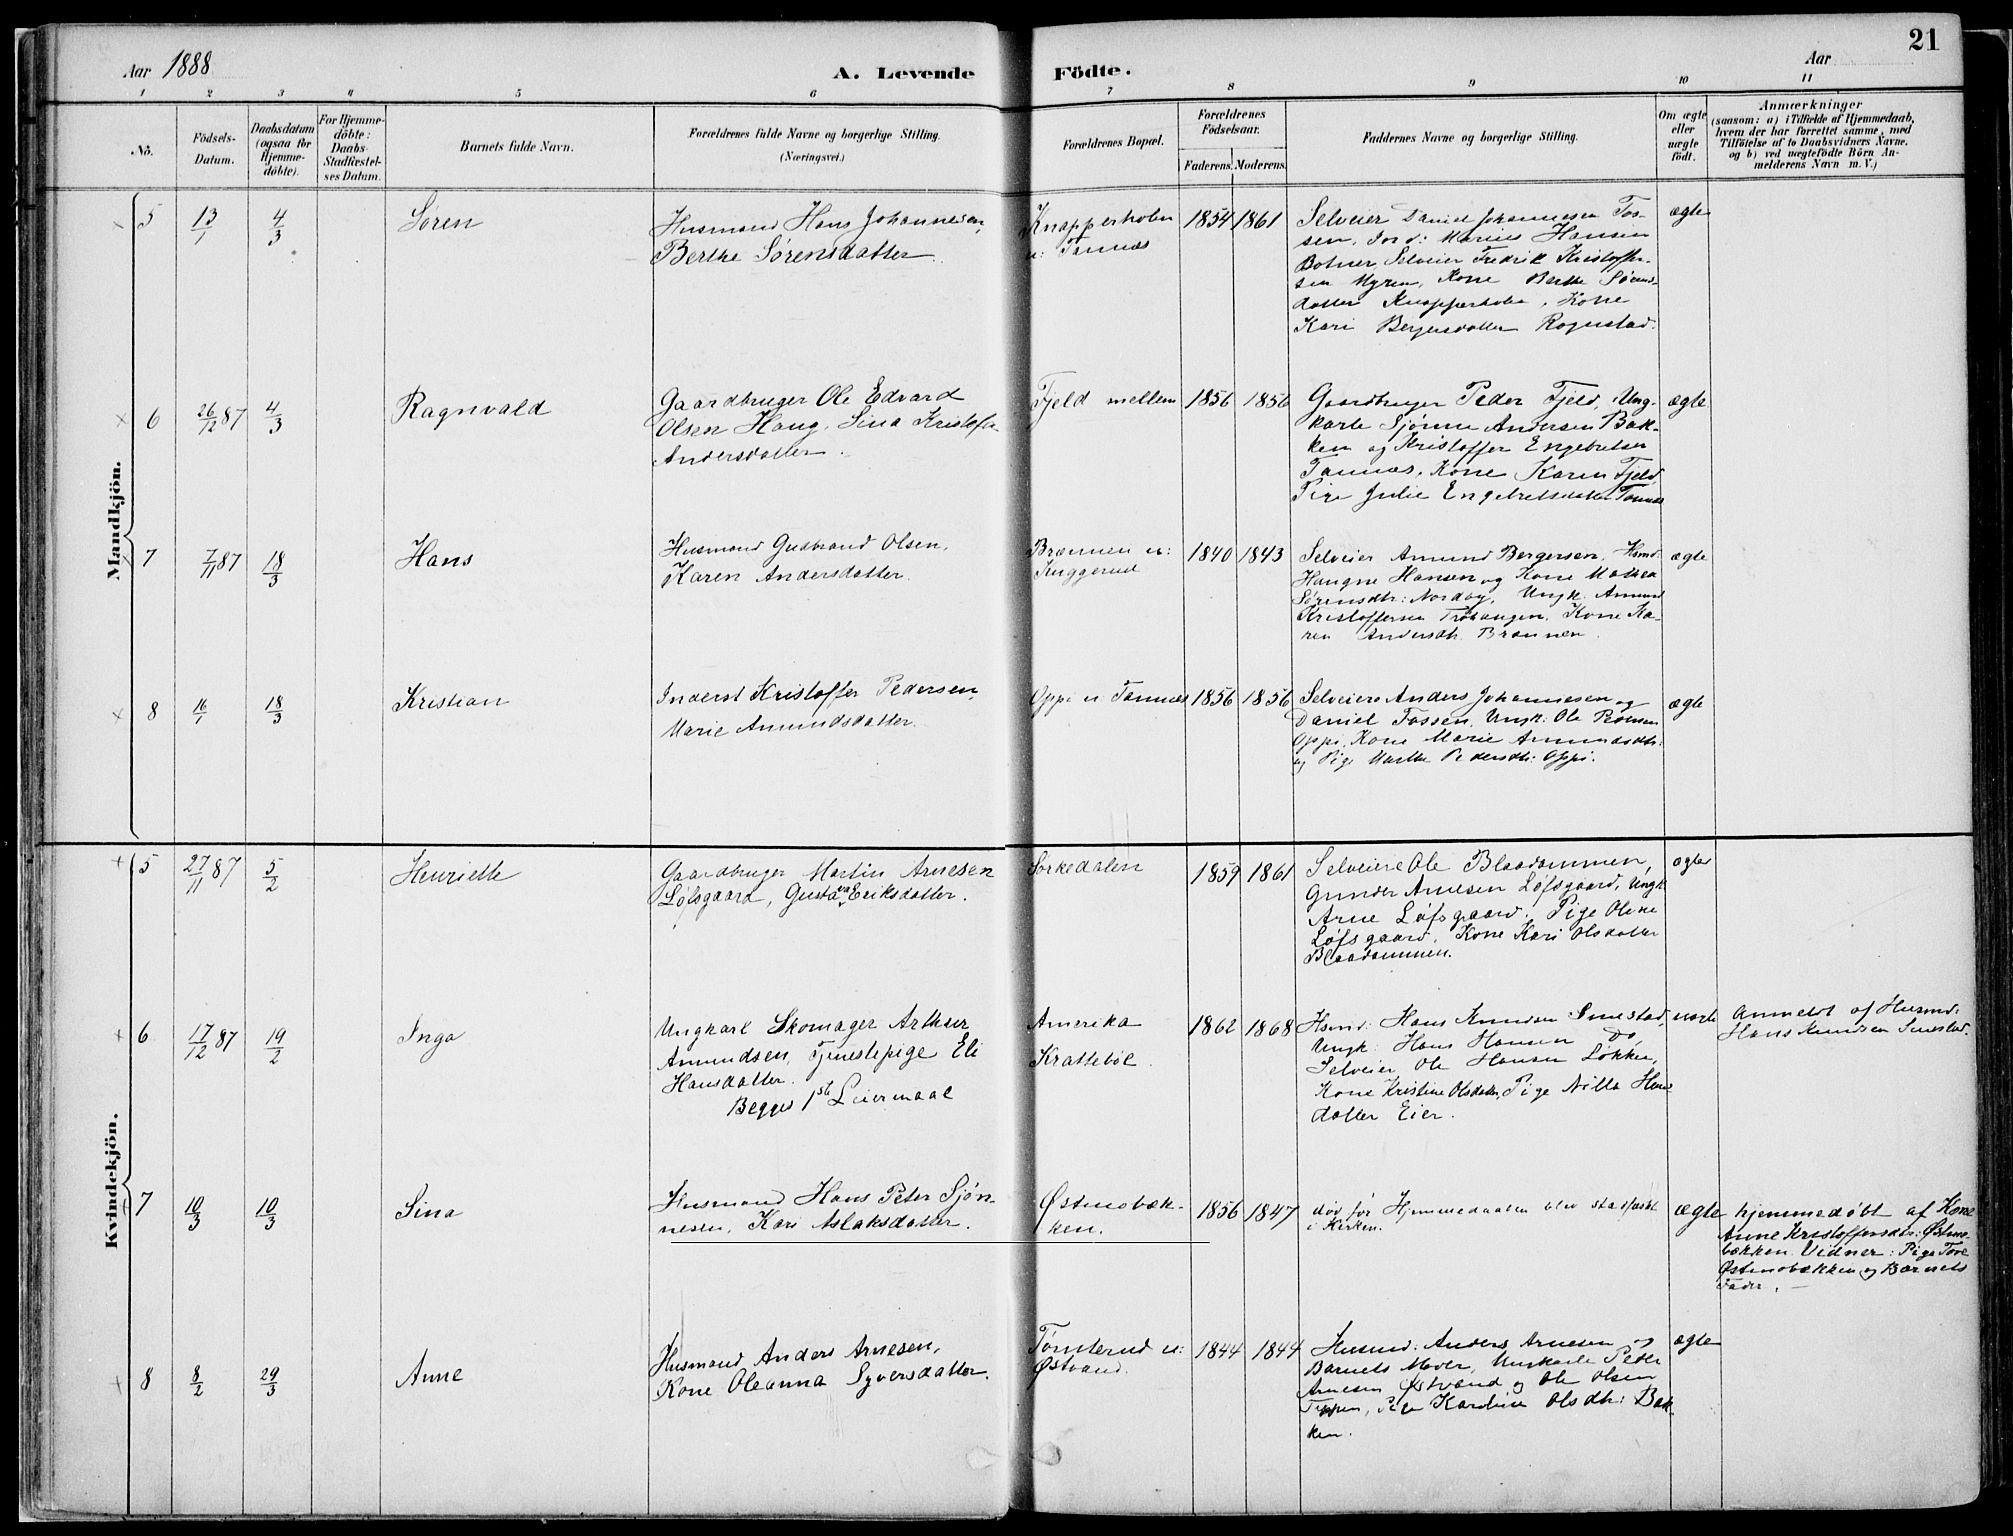 21
Aar 1888
A. Levende Födte.
Aar
1 2 3 4 5 6 7 8 9 10 11
Nö.
Födsels-Datum.
Daabsdatum (ogsaa for Hjemme-döbte).
For Hjemme-döbte: Daabs-Stadfæstel-ses Datum.
Barnets fulde Navn.
Forældrenes fulde Navne og borgerlige Stilling.
(Næringsvei.)
Forældrenes Bopæl.
Forældrenes Födselsaar.
Faderens. Moderens.
Faddernes Navne og borgerlige Stilling.
Om ægte eller uægte födt.
Anmærkninger
(saasom: a) i Tilfælde af Hjemmedaab,
hvem der har forrettet samme, med
Tilföielse af to Daabsvidners Navne.
og b) ved uægtefödte Börn An-
melderens Navn m. V.)
Mandkjön.
5 13/1 4/3 Søren
Husmand Hans Johannesen,
Berthe Sørensdatter
Knapperholen
u: Tannæs
1854 1861
Selveier Daniel Johannesen Fos-
sen, Ind: Marius Hansen
Botner, Selveier Fredrik Kristoffer-
sen Myren, Kone Berthe Sørens-
datter Knapperholen, Kone
Kari Bergersdatter Rognstad.
ægte
6 26/12 87 4/3 Ragnvald
Gaardbruger Ole Edvard
Olsen Haug, Sina Kristofa
Andersdatter.
Fjeld mellem
1856 1856
Gaardbruger Peder Fjeld, Ung-
karle Sjønne Andersen Bak-
ken og Kristoffer Engebretsen
Tannæs, Kone Karen Fjeld,
Pige Julie Engebretsdatter Tannæs
ægte
7 7/11 87 18/3 Hans
Husmand Gudbrand Olsen,
Karen Andersdatter.
Brænnen u:
Kuggerud
1840 1843
Selveier Amund Bergersen, Hsmd:
Haugne Hansen og Kone Mathea
Sørensdtr: Nordby, Ungk. Amund
Kristoffersen Trøhaugen, Kone Ka-
ren Andersdtr. Brænnen.
ægte
8 16/1 18/3 Kristian
Inderst Kristoffer Pedersen
Marie Amundsdatter.
Oppi u Tannæs
1856 1856
Selveiere Anders Johannesen og
Daniel Fossen, Ungk: Ole
Oppi, Kone Marie Amundsdtr:
og Pige Marthe Pedersdtr: Oppi.
ægte
Kvindekjön.
5 27/11 87 5/2 Henriette
Gaardbruger Martin Arnesen
Løfsgaard, Gustava Eriksdatter.
Sørkedalen
1859 1861
Selveiere Ole Blaadammen,
Gunder Arnesen Løfsgaard, Ungk:
Arne Løfsgaard. Pige Oline
Løfsgaard, Kone Kari Olsdatter
Blaadammen.
ægte
6 17/12 87 19/2 Inga
Ungkarl Skomager Arthur
Amundsen, Tjenestepige Eli
Hansdatter.
Begges 1ste Leiermaal
Amerika
Krattebøl
1862 1868
Hsmd: Hans Knudsen Smestad,
Ungk: Hans Hansen Do,
Selveier Ole Hansen Løkken,
Kone Kristine Olsdatter, Pige Nilla Hans
datter Eier.
uægte
Anmeldt af Husmd:
Hans Knudsen Smestad.
7 10/3 10/3 Sina
Husmand Hans Peter Sjøn-
nesen, Kari Aslaksdatter.
Østmobæk-
ken.
1856 1847
død før Hjemmedaaben blev stadfæstet
i Kirken.
ægte
hjemmedøbt af Kone
Anne Kristoffersdtr: Østmo-
bækken. Vidner: Pige Tove
Østmobækken og Barnets
Fader.
8 8/2 29/3 Anne
Husmand Anders Arnesen,
Kone Oleanna Syversdatter.
Tømterud u:
Østvand.
1844 1844
Husmd: Anders Arnesen og
Barnets Moder, Ungkarle Peter
Arnesen Østvand og Ole Olsen
Tippen, Pige Karoline Olsdtr: Bak-
ken.
ægte